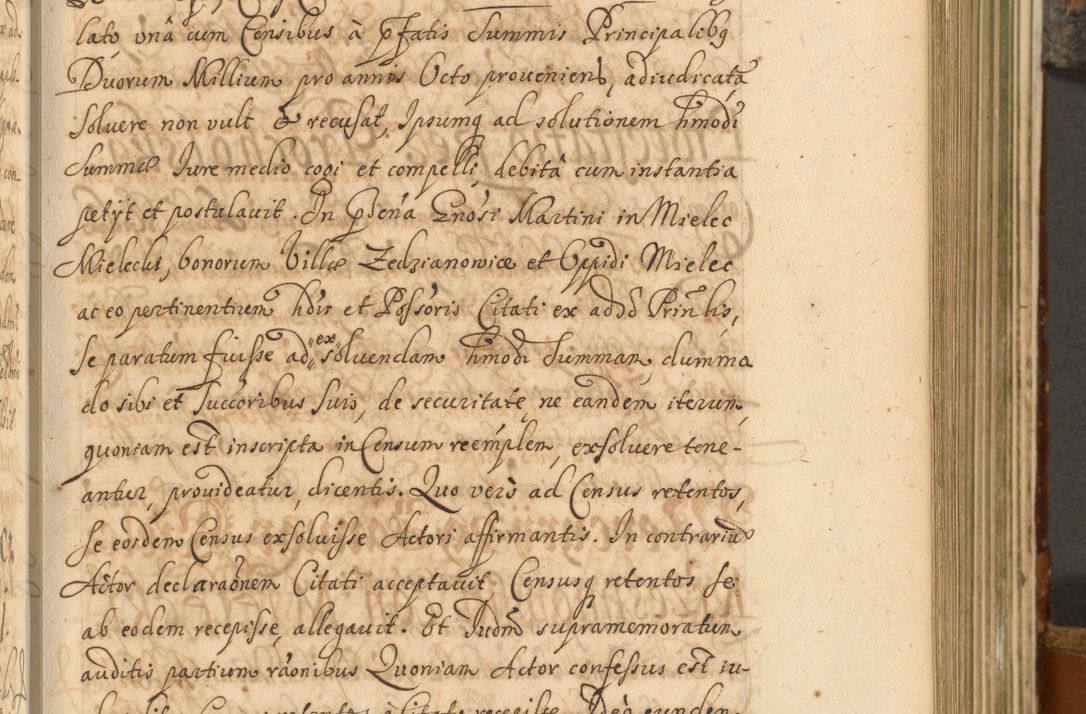 lato unâ cum Censibus à pfatis Summis Principalibq
Duorum Millium pro annis Octo proueniens, adiudicatâ
soluere non vult & recusat, Ipsumq ad solutionem hmodi
Summæ Iure medio cogi et compelli, debitâ cum instantia
petyt et postulauit. In pñtia Gñosi Martini in Mielec
Mielecki, bonorum Villæ Zedzianowice et Oppidi Mielec
ac eo pertinentium Hdis et Possoris Citati ex addo Prinlis,
se paratum fuisse ad exsoluendam hmodi Summam, dummo
do sibi et Succoribus suis, de securitate, ne eandem iterum,
quoniam est inscripta in Censum reemplem, exsoluere tene-
antur, prouideatur, dicentis. Quo verò ad Census retentos,
se eosdem Census exsoluisse Actori affirmantis. In contrariũ
Actor declaraõnem Citati acceptauit, Censusq retentos se
ab eodem recepisse, allegauit. Et Iudm supramemoratum,
auditis partium raõnibus Quoniam Actor confessus est iu-